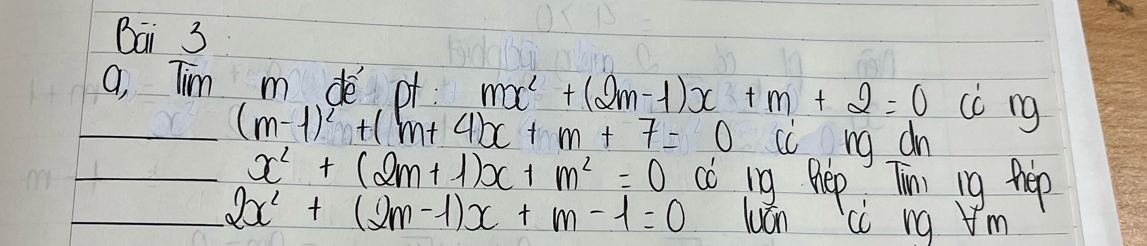 Bài 3:
a, Tìm m để pt: mx² + (2m-1)x + m + 2 = 0 có ng
(m-1)² + (m+4)x + m + 7 = 0 có ng dn
x² + (2m+1)x + m² = 0 có ng kép. Tìm ng kép
2x² + (2m-1)x + m - 1 = 0 luôn có ng ∀m